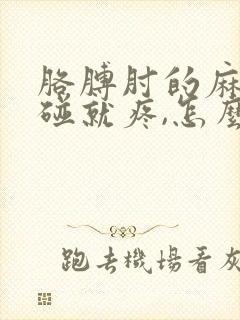 胳膊肘的麻
碰就疼,怎麼
跑去機場看灰